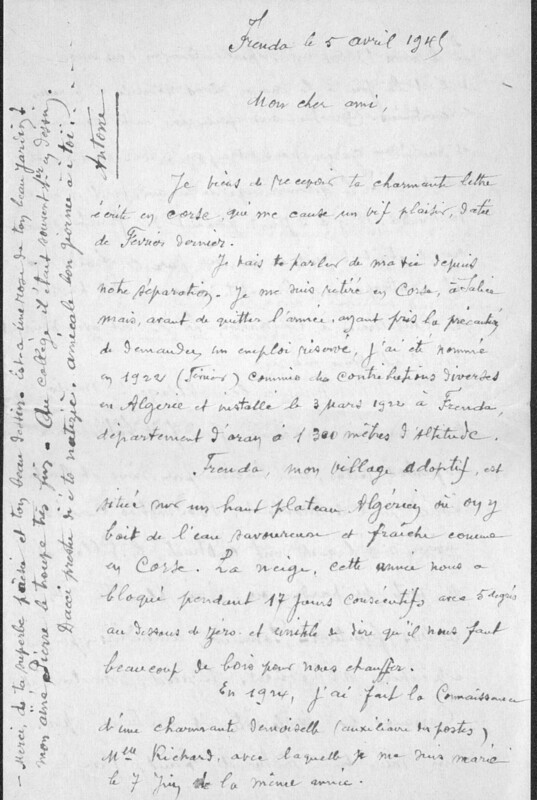 Frenda le 5 avril 1945
Mon cher ami,
Je viens de recevoir ta charmante lettre
écrite en corse, que me cause un vif plaisir, datée
de Fevrier dernier.
Je vais te parler de ma vie depuis
notre separation. Je me suis retiré en Corse,
mais, avant de quitter l'armée, ayant pris la précaution
de demander un emploi réservé, j'ai été nommé
en 1922 (Février) commis des contributions diverses
en Algerie et installé le 3 mars 1922 à Frenda,
département d'oran à 1300 mètres d'altitude.
Frenda, mon village adoptif, est
située sur un haut plateau Algérien où on y
boit de l'eau savoureuse et fraîche comme
en Corse. La neige, cette année nous a
bloqué pendant 17 jours consécutifs avec 5 degrés
au dessous de zéro et inutile de dire qu'il nous faut
beaucoup de bois pour nous chauffer.
En 1924, j'ai fait la connaissance
d'une charmante demoiselle (auxiliaire des postes)
Mlle Richard, avec laquelle je me suis marié
le 7 Juin de la même année.
- Merci, de ta superbe poésie et ton beau dessin. une rose de ton beau Jardin?
mon aîné Pierre le trouve très fin. Au collège, il était souvent 1er en dessin.
Dacci prestu di e to nutizie. amicale bon giorne a
Antoine